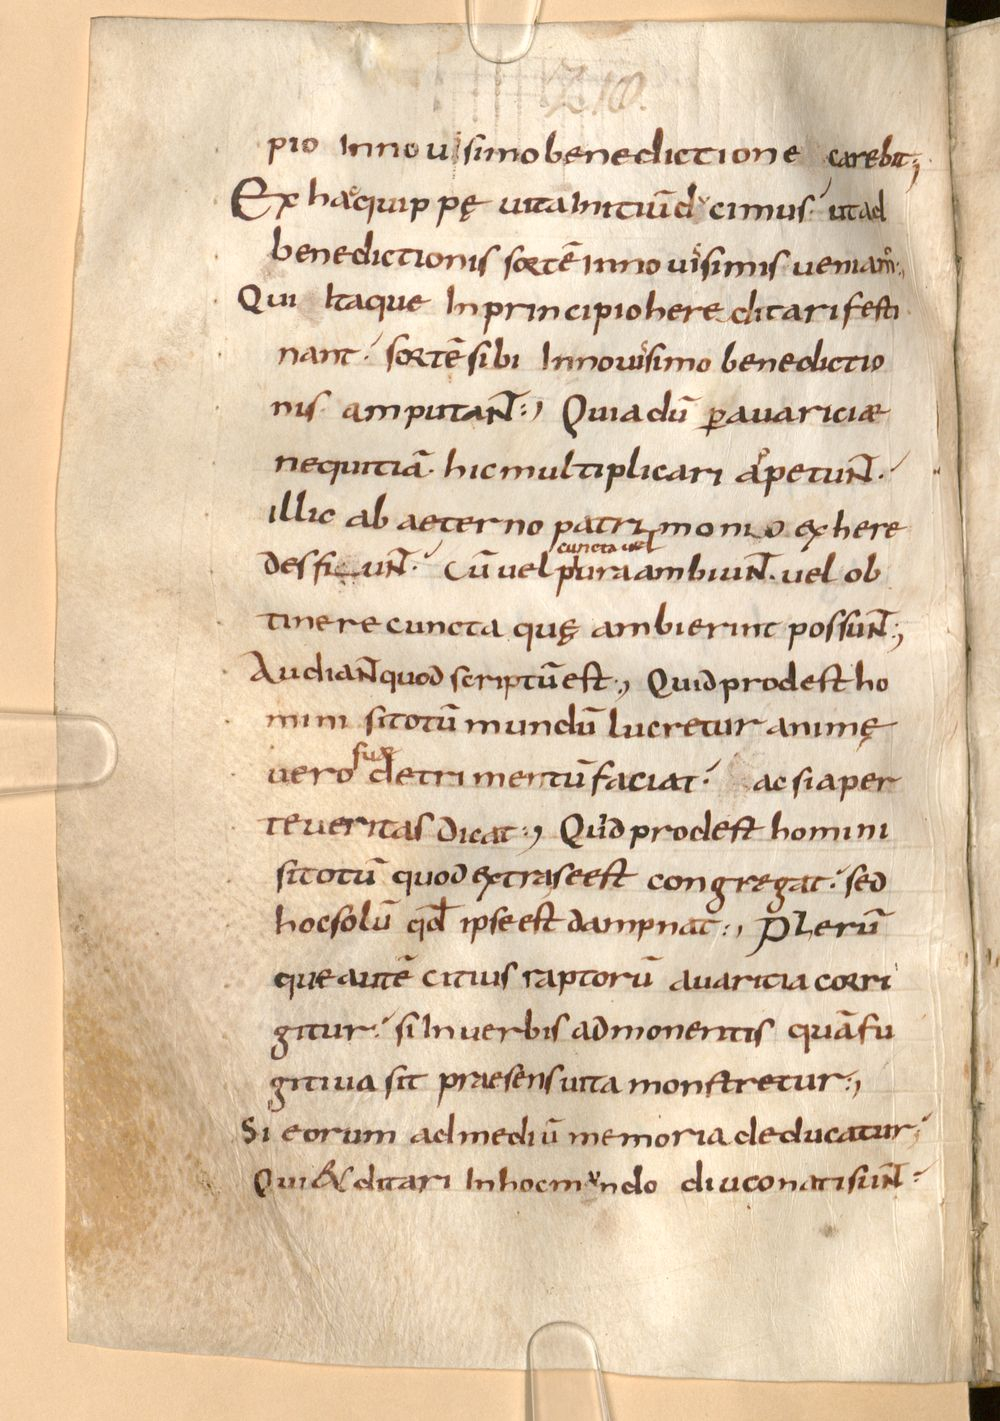 pio Innouisimo benedictione carebit;
Ex hac quippe uita Initiũ ducimus. ut ad
benedictionis sortẽ In nouisimis ueniam̃.,
Qui Itaque In principio hereditari festi
nant. sortẽ sibi In nouisimo benedictio
nis amputanT., Quia dũ ꝑ auariciæ
nequitiã. hic multiplicari appetunT.
illic ab aeterno patrimonio exhere
des fiunT. Cũ uel plura ambiunT. uel ob
cuncta uel
tinere cuncta quę ambierint possunT;
AudianT quod scriptũ est., Quid prodest ho
mini si totũ mundũ lucretur animę
uero suæ detrimentũ faciat. ac si aper
te ueritas dicat., Quid prodest homini
si totũ quod extra se est congregat. sed
hoc solũ qđ ipse est dampnat., Plerũ
que autẽ citius raptorũ auaritia corri
gitur. si In uerbis admonentis quã fu
gitiua sit praesens uita monstretur.,
Si eorum ad mediũ memoria deducatur.
Qui & ditari In hoc mundo diu conati sunT.